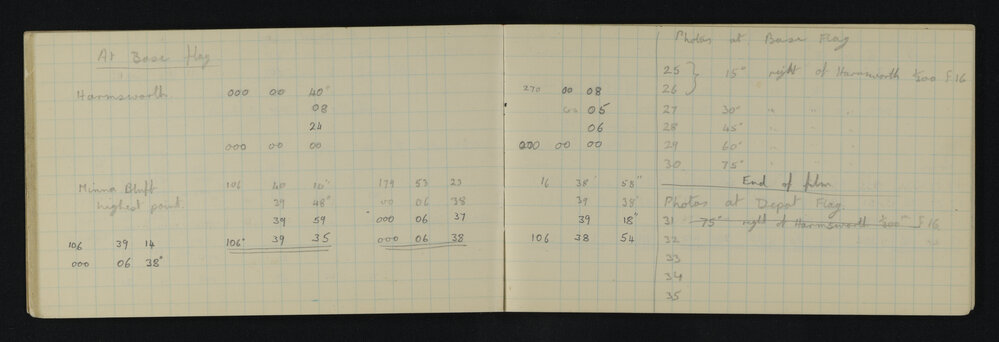 At Base flag
Harmsworth 000 00 40"
08
24
000 00 00
Minna Bluff 106 40 10" 179 53 23
highest point. 39 48" 00 06 38
39 59 000 06 37
106 39 14 106° 39 35 000 06 38
000 06 38"
270 00 08
05
06
000 00 00
16 38' 58"
39 38"
39 18"
106 38 54
Photos at Base Flag
25 } 15° right of Harmsworth 1/500 f.16
26
27 30° " " "
28 45° " " "
29 60° " " "
30 75° " " "
End of film
Photos at Depot Flag.
31 75° right of Harmsworth 1/500 f 16
32
33
34
35